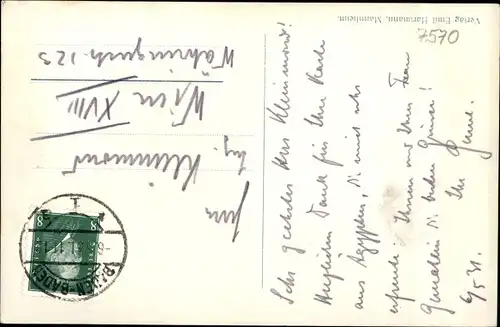 Verlag Emil Hartmann, Mannheim.
7570
Sehr geehrter Herr Kleinmond!
Herzlichen Dank für Ihre Karte
aus Ägypten, die mich sehr
erfreute. Ihnen und Ihrer Frau
Gemahlin die besten Grüsse!
Ihr
6/5 31.
Herrn
Ing. Kleinmond
Wien XVIII
Währingerstr. 123
BADEN-BADEN
8
8